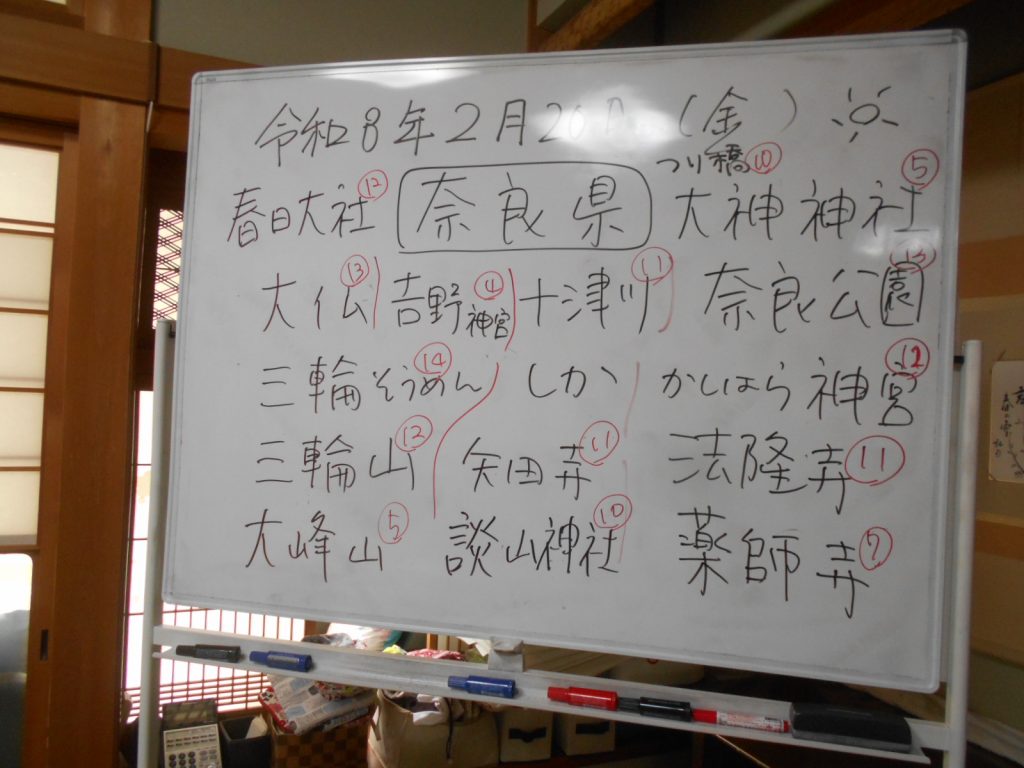 令和8年2月20日(金)
つり橋⑩
春日大社⑫ 奈良県 大神神社⑤
大仏⑬ 吉野神宮④ 十津川⑪ 奈良公園
三輪そうめん⑭ しか かしはら神宮⑫
三輪山⑫ 矢田寺⑪ 法隆寺⑪
大峰山⑤ 談山神社⑩ 薬師寺⑦